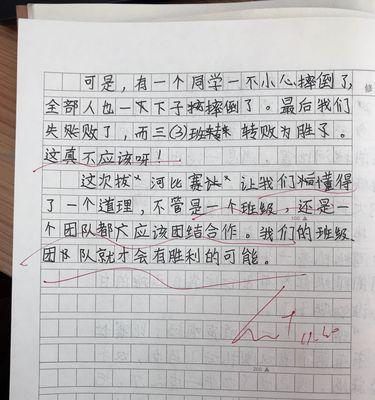 可是，有一个同学一不小心摔倒了，
全部人也一下子摔倒了。最后我们
失败了，而三(3)班 转败为胜了。
这真不应该呀！
这次拔"河比赛让"让我们懂得
了一个道理，不管是一个班级，还是一
个团队都应该团结合作。我们的班级、
团队就才会有胜利的可能。
11.20
200
修